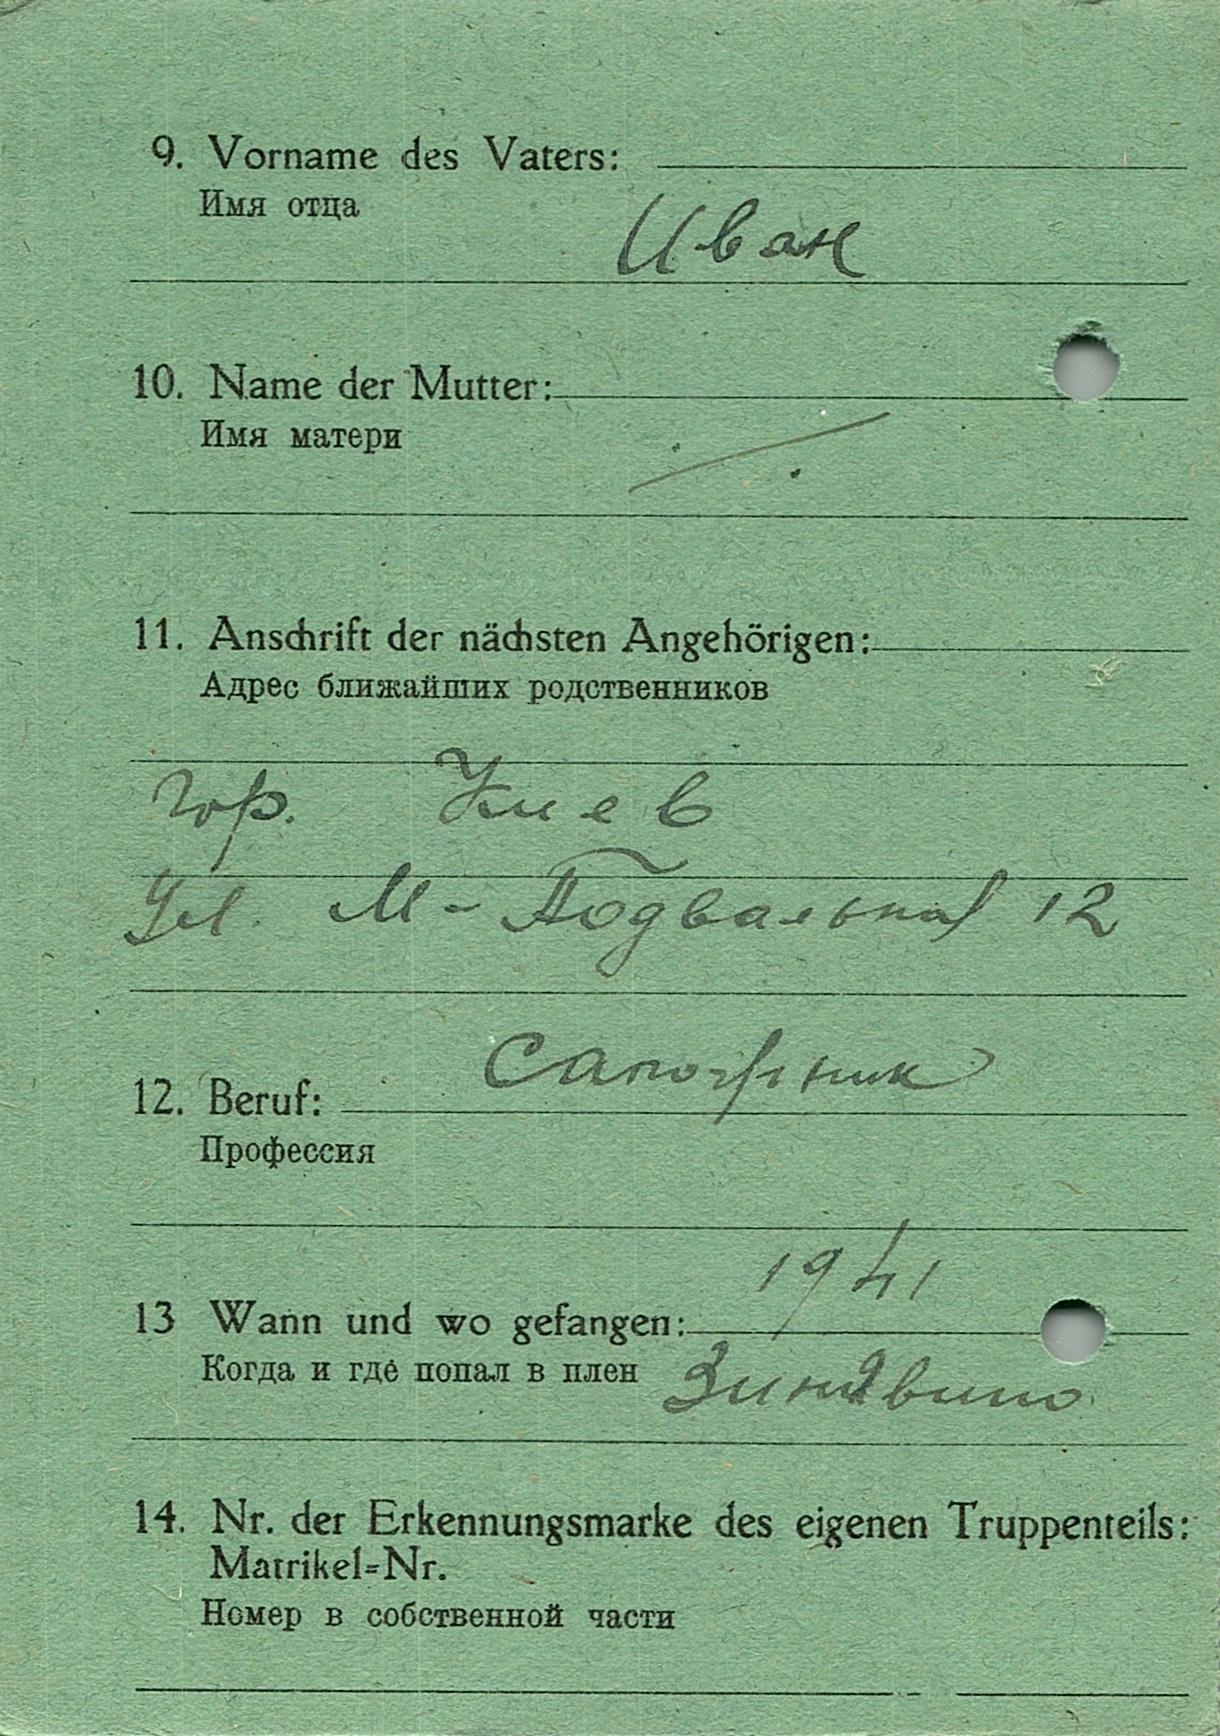 9. Vorname des Vaters:
Имя отца
Иван
10. Name der Mutter:
Имя матери
11. Anschrift der nächsten Angehörigen:
Адрес ближайших родственников
гор. Киев
Ул. М-Подвальная 12
Сапожник
12. Beruf:
Профессия
1941
13 Wann und wo gefangen:
Когда и где попал в плен
Зинявино
14. Nr. der Erkennungsmarke des eigenen Truppenteils:
Matrikel=Nr.
Номер в собственной части